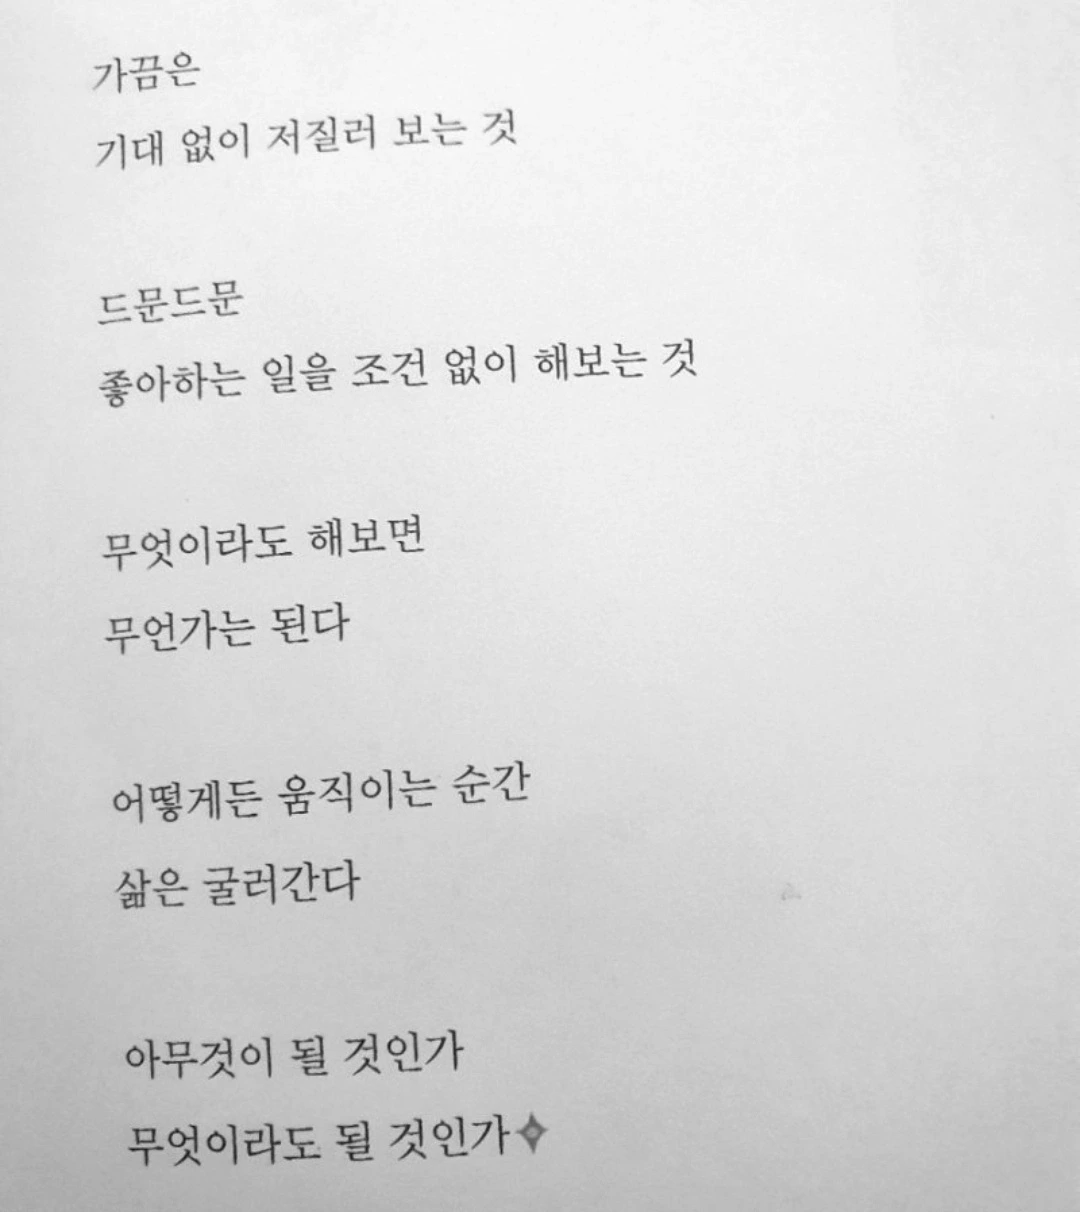 가끔은
기대 없이 저질러 보는 것
드문드문
좋아하는 일을 조건 없이 해보는 것
무엇이라도 해보면
무언가는 된다
어떻게든 움직이는 순간
삶은 굴러간다
아무것이 될 것인가
무엇이라도 될 것인가